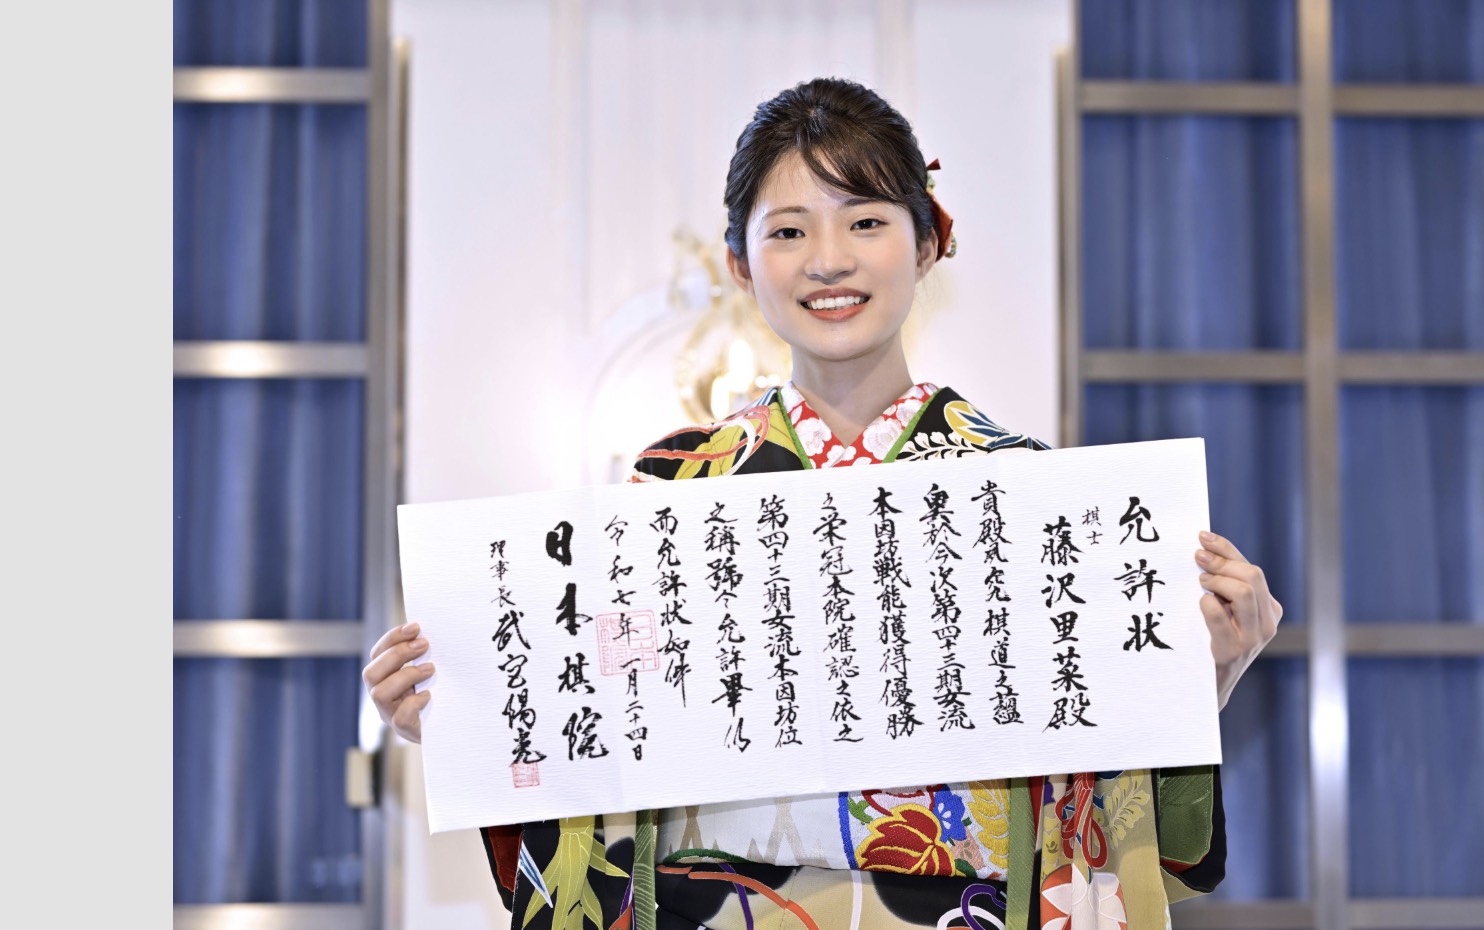 允許状
棋士
藤沢里菜殿
貴殿夙究棋道之蘊
奥於今次第四十三期女流
本因坊戦能獲得優勝
之栄冠本院確認之依之
第四十三期女流本因坊位
之稱號令允許畢仍
而允許状如件
令和七年一月二十四日
日本棋院
理事長 武宮陽光